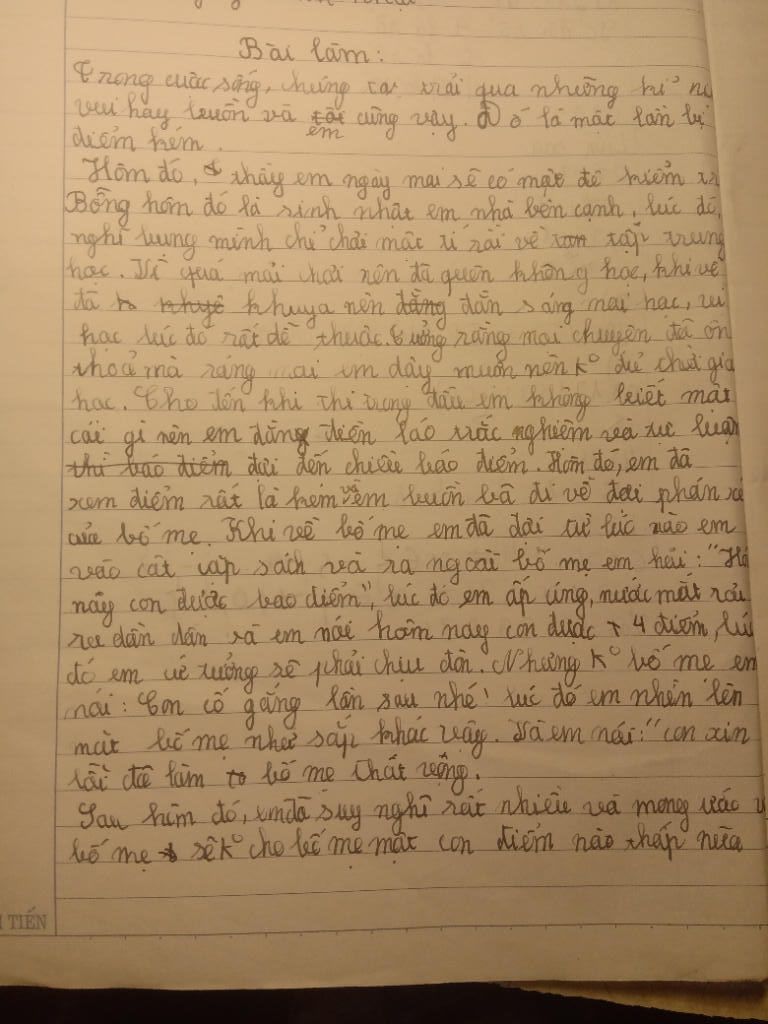 Bài làm:
Trong cuộc sống, chúng ta trải qua những kỉ ni
vui hay buồn và em cũng vậy. Đó là một lần bị
điểm kém.
Hôm đó, thầy em ngày mai sẽ có một đề kiểm tr
Bỗng hôm đó là sinh nhật em nhà bên cạnh, lúc đó,
nghĩ bụng mình chỉ chơi một tí rồi về tập trung
học. Vì quá mải chơi nên đã quên không học, khi về
đã khuya nên dằn sáng mai học, vì
học lúc đó rất dễ thuộc. Tưởng rằng mai chuyện đã ổn
thoả mà sáng mai em dậy muộn nên k° đủ thời gia
học. Cho đến khi thi trong đầu em không biết một
cái gì nên em đằng điền láo trắc nghiệm và tự luận
đợi đến chiều báo điểm. Hôm đó, em đã
xem điểm rất là kém và em buồn bã đi về đợi phán xé
của bố mẹ. Khi về bố mẹ em đã đợi từ lúc nào em
vào cất cặp sách và ra ngoài bố mẹ em hỏi: "Hô
nãy con được bao điểm", lúc đó em ấp úng, nước mắt rơi
ra dần dần và em nói hôm nay con được 4 điểm, lú
đó em cứ tưởng sẽ phải chịu đòn. Nhưng k° bố mẹ em
nói: Con cố gắng lần sau nhé! lúc đó em nhìn lên
mặt bố mẹ như sắp khóc vậy. Và em nói: "con xin
lỗi đã làm bố mẹ thất vọng.
Sau hôm đó, em đã suy nghĩ rất nhiều và mong ước
bố mẹ sẽ k° cho bố mẹ một con điểm nào thấp nữa
TIẾN